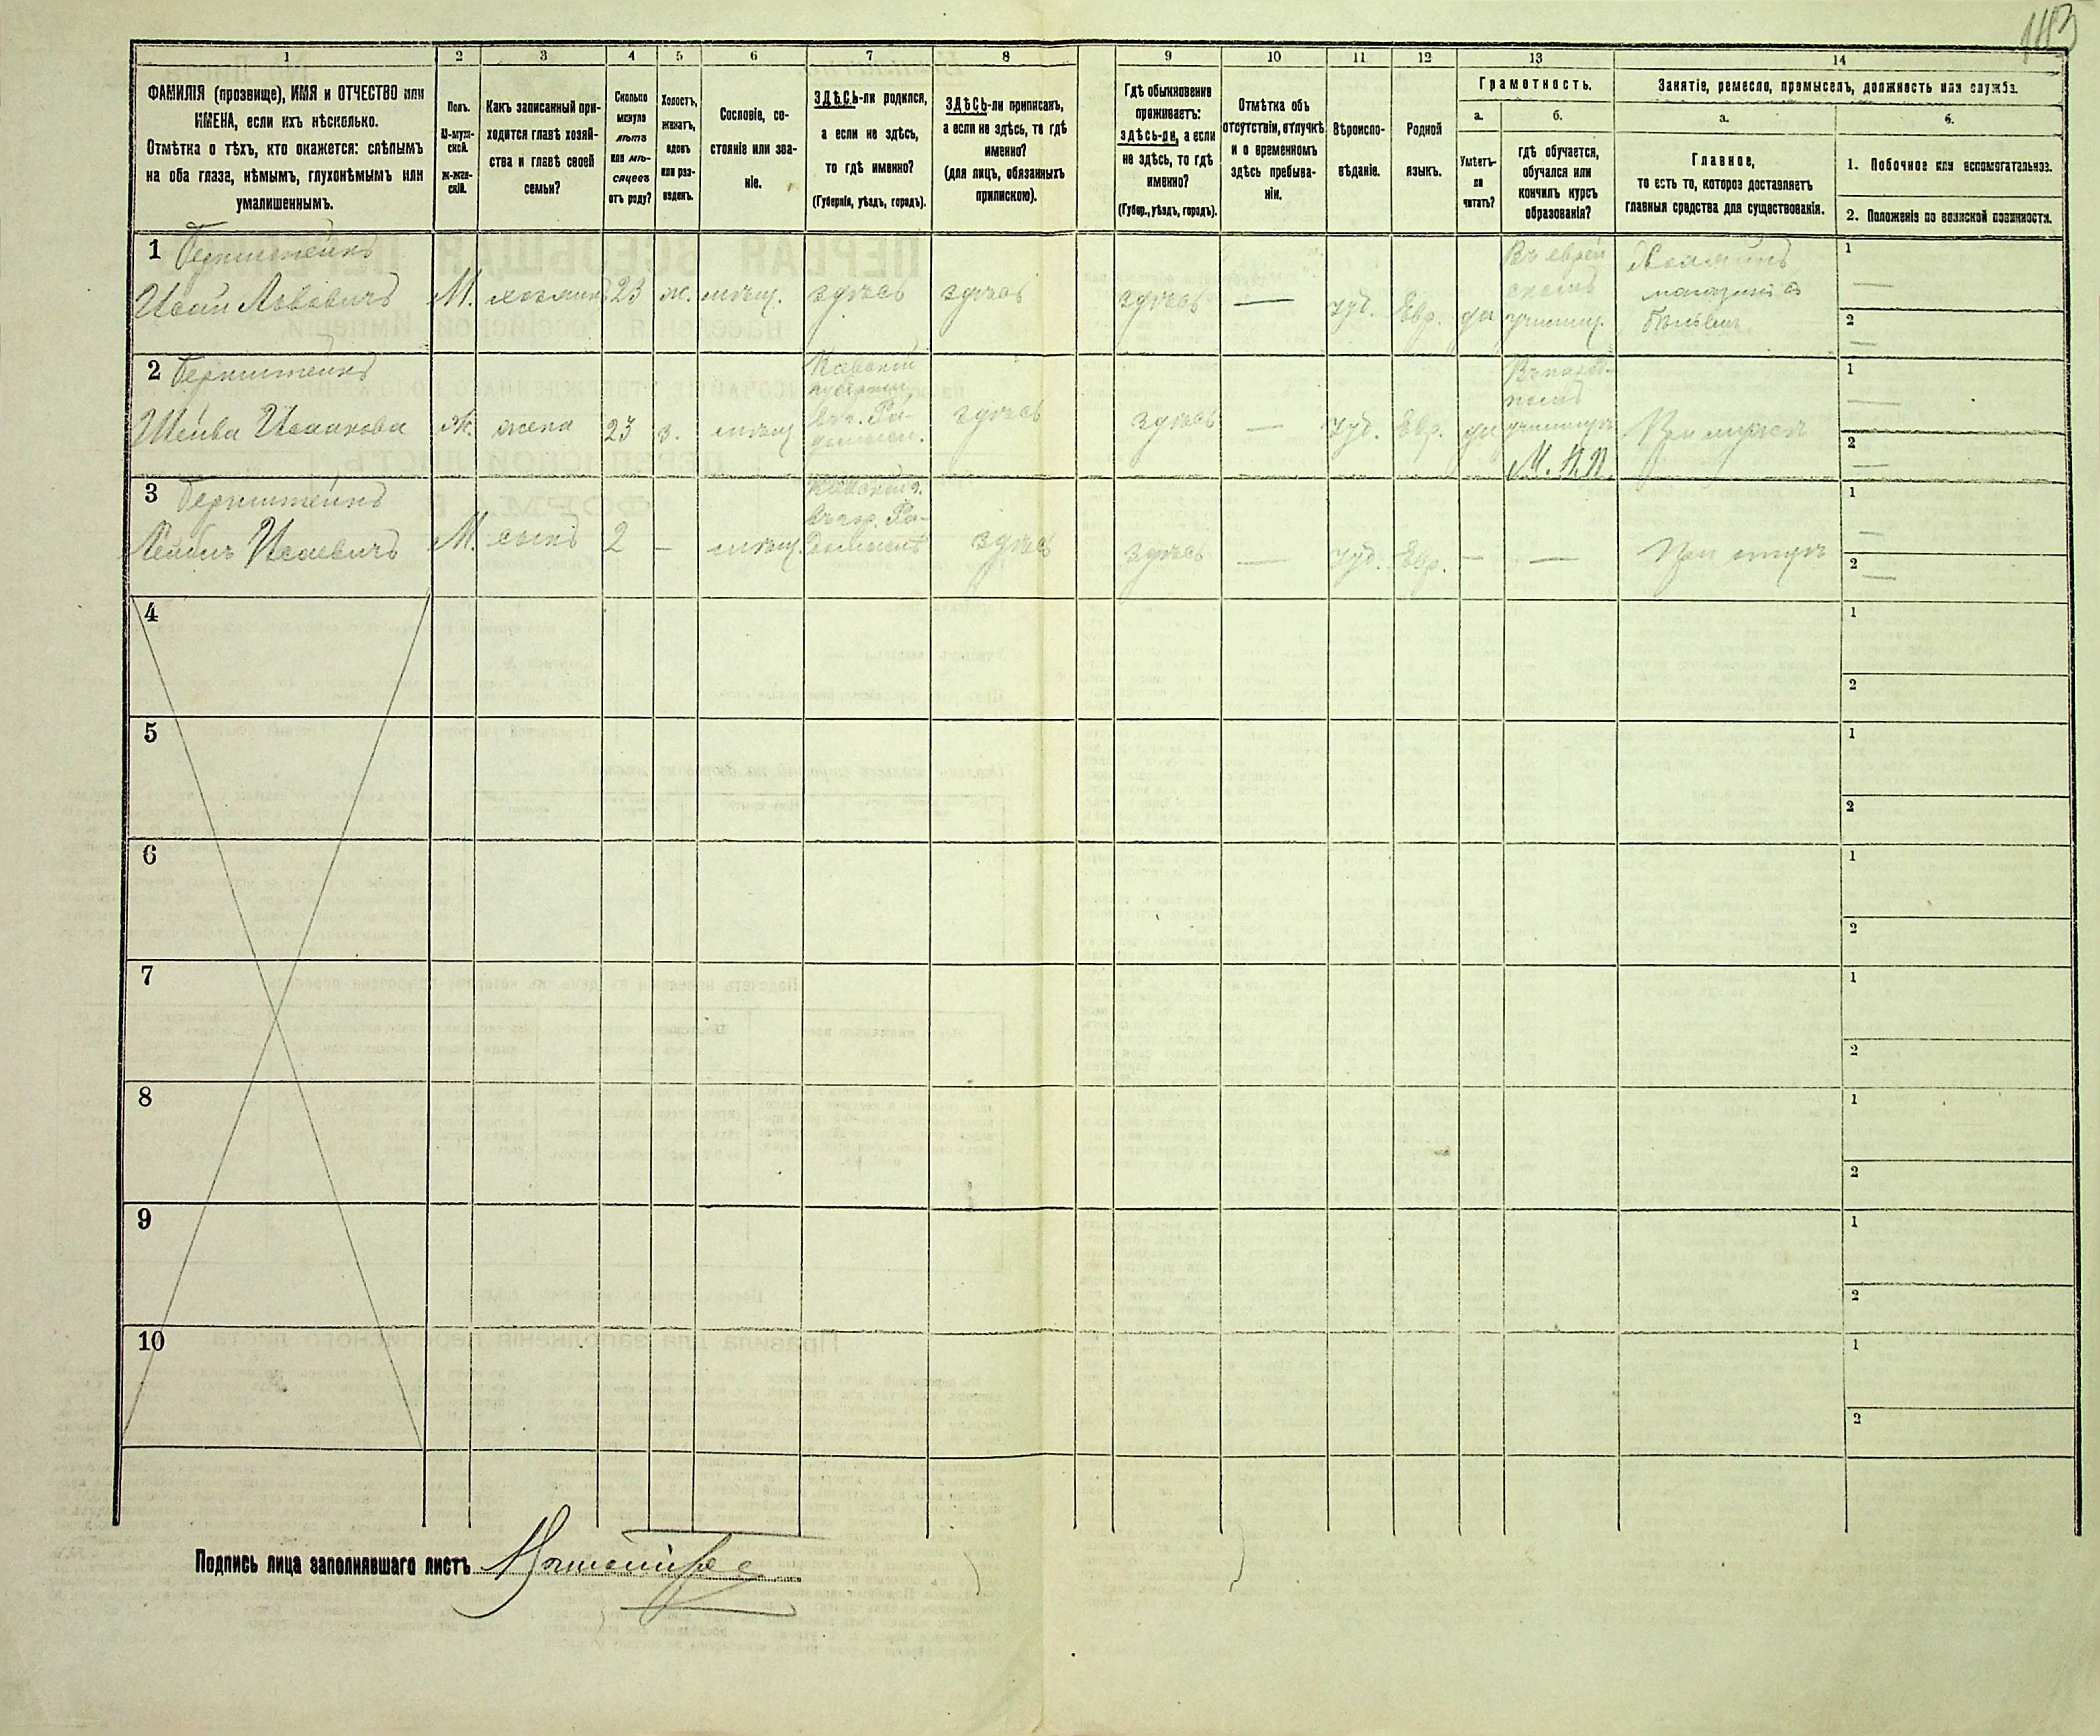 143
1
2
3
4
5
6
7
8
9
10
11
12
13
14
ФАМИЛІЯ (прозвище), ИМЯ и ОТЧЕСТВО или
ИМЕНА, если ихъ нѣсколько.
Отмѣтка о тѣхъ, кто окажется: слѣпымъ
на оба глаза, нѣмымъ, глухонѣмымъ или
умалишеннымъ.
Полъ.
М-муж-
ской.
ж-жен-
скій.
Какъ записанный при-
ходится главѣ хозяй-
ства и главѣ своей
семьи?
Сколько
минуло
лѣтъ
или мѣ-
сяцевъ
отъ роду?
Холостъ,
женатъ,
вдовъ
или раз-
веденъ.
Сословіе, со-
стояніе или зва-
ніе.
ЗДѢСЬ-ли родился,
а если не здѣсь,
то гдѣ именно?
(Губернія, уѣздъ, городъ).
ЗДѢСЬ-ли приписанъ,
а если не здѣсь, то гдѣ
именно?
(для лицъ, обязанныхъ
припискою).
Гдѣ обыкновенно
проживаетъ:
здѣсь-ли, а если
не здѣсь, то гдѣ
именно?
(Губер., уѣздъ, городъ).
Отмѣтка объ
отсутствіи, отлучкѣ
и о временномъ
здѣсь пребыва-
ніи.
Вѣроиспо-
вѣданіе.
Родной
языкъ.
Грамотность.
а.
Умѣетъ-
ли
читать?
б.
гдѣ обучается,
обучался или
кончилъ курсъ
образованія?
Занятіе, ремесло, промыселъ, должность или служба.
а.
Главное,
то есть то, которое доставляетъ
главныя средства для существованія.
б.
1. Побочное или вспомогательное.
2. Положеніе по воинской повинности.
1 Бернштейнъ
Исай Львовичъ М. хозяинъ 23 ж. мѣщ. здѣсь здѣсь здѣсь — іуд. Евр. да
Въ еврей
скомъ
училищ.
1 —
2 —
2 Бернштейнъ
Шейва Исаакова Ж. жена 23 з. мѣщ.
Кіевской
губерніи,
въ г. Ра-
домысл.
здѣсь здѣсь — іуд. Евр. да
училищѣ
М. Н. П.
При мужѣ
1 —
2 —
3 Бернштейнъ
Лейбъ Исаевичъ М. сынъ 2 — мѣщ.
Кіевской г.
въ гор. Ра-
домыслѣ
здѣсь здѣсь — іуд. Евр. — — При отцѣ
1 —
2 —
4
1
2
5
1
2
6
1
2
7
1
2
8
1
2
9
1
2
10
1
2
Подпись лица заполнявшаго листъ